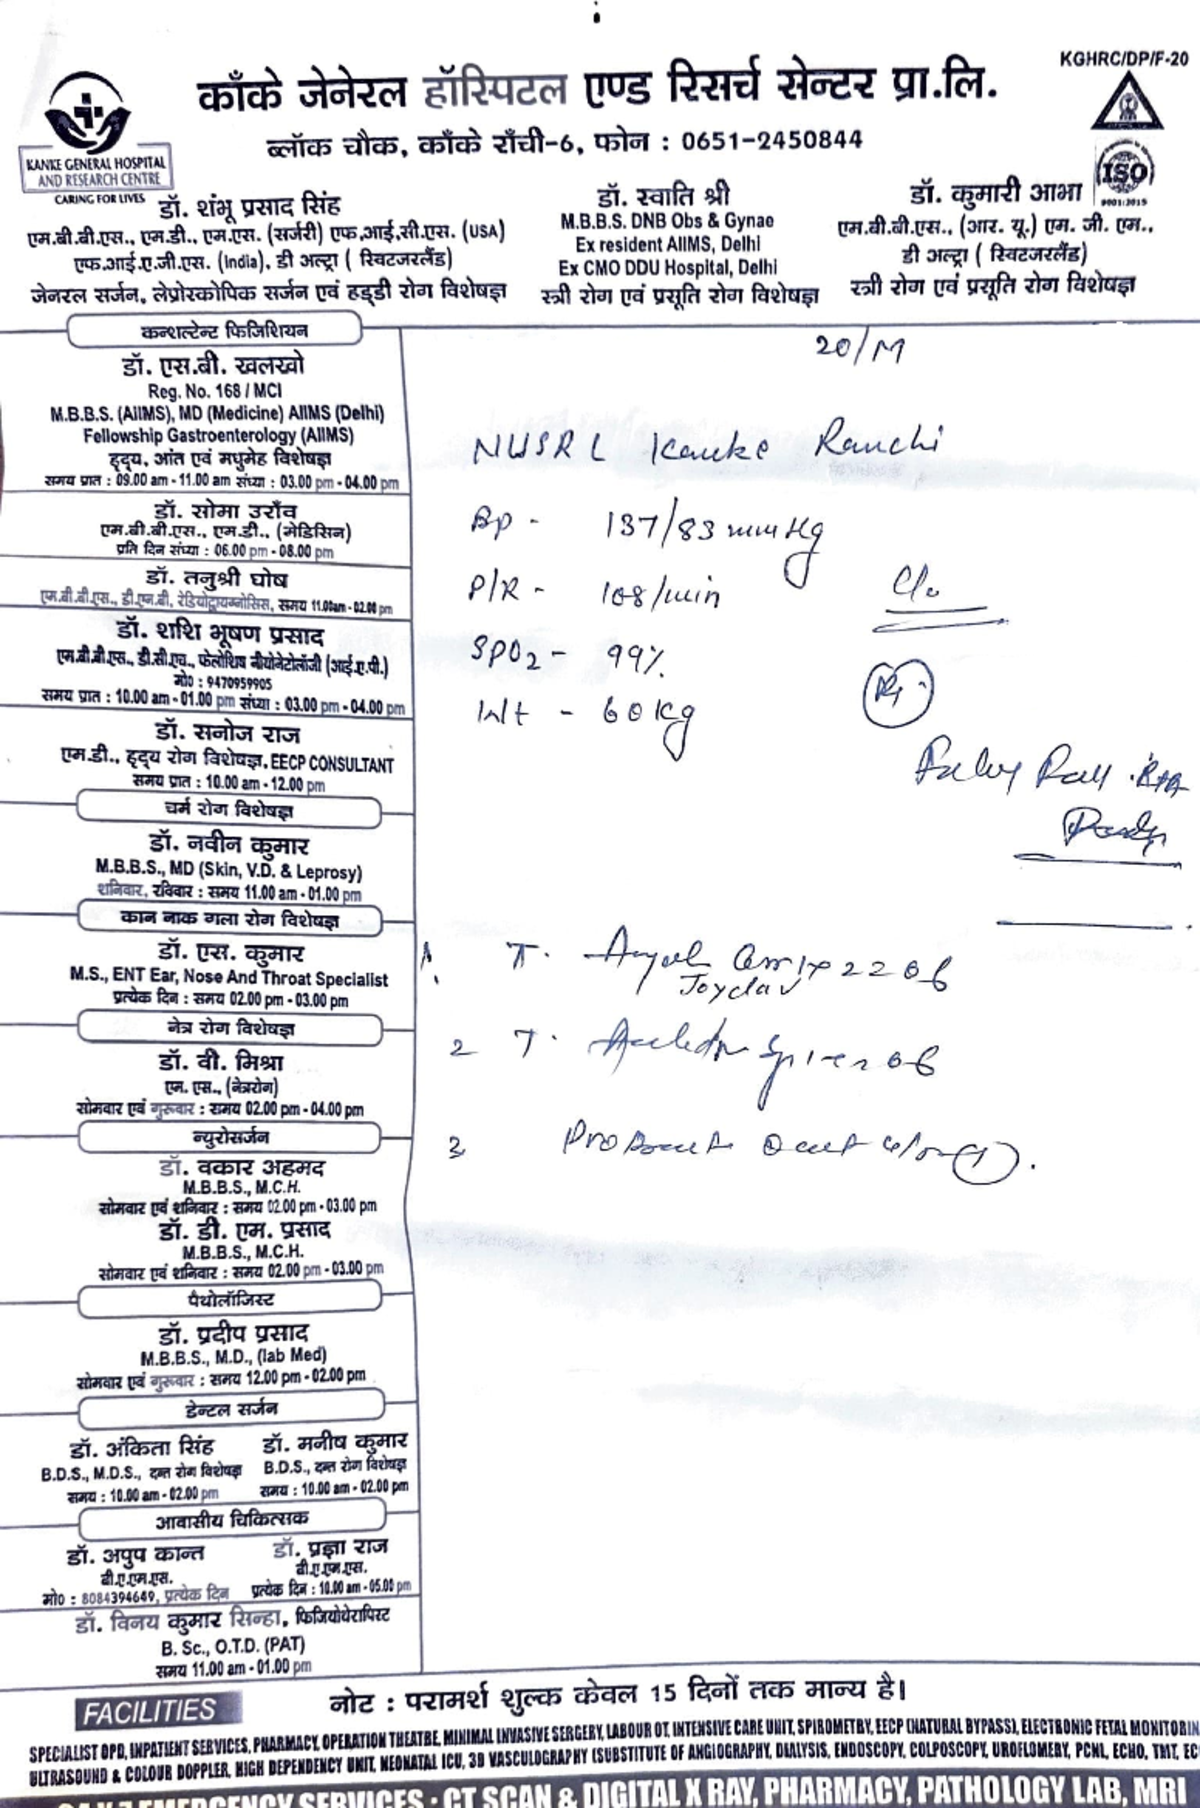 KGHRC/DP/F-20
काँके जेनेरल हॉस्पिटल एण्ड रिसर्च सेन्टर प्रा.लि.
ब्लॉक चौक, काँके राँची-6, फोन : 0651-2450844
KANKE GENERAL HOSPITAL
AND RESEARCH CENTRE
CARING FOR LIVES
ISO
9001:2015
डॉ. शंभू प्रसाद सिंह
एम.बी.बी.एस., एम.डी., एम.एस. (सर्जरी) एफ.आई.सी.एस. (USA)
एफ.आई.ए.जी.एस. (India), डी अल्ट्रा ( स्विटजरलैंड)
जेनरल सर्जन, लेप्रोस्कोपिक सर्जन एवं हड्डी रोग विशेषज्ञ
डॉ. स्वाति श्री
M.B.B.S. DNB Obs & Gynae
Ex resident AIIMS, Delhi
Ex CMO DDU Hospital, Delhi
स्त्री रोग एवं प्रसूति रोग विशेषज्ञ
डॉ. कुमारी आभा
एम.बी.बी.एस., (आर. यू.) एम. जी. एम.,
डी अल्ट्रा ( स्विटजरलैंड)
स्त्री रोग एवं प्रसूति रोग विशेषज्ञ
कन्शल्टेन्ट फिजिशियन
डॉ. एस.बी. खलखो
Reg. No. 168 / MCI
M.B.B.S. (AIIMS), MD (Medicine) AIIMS (Delhi)
Fellowship Gastroenterology (AIIMS)
हृदय, आंत एवं मधुमेह विशेषज्ञ
समय प्रात : 09.00 am - 11.00 am संध्या : 03.00 pm - 04.00 pm
डॉ. सोमा उराँव
एम.बी.बी.एस., एम.डी., (मेडिसिन)
प्रति दिन संध्या : 06.00 pm - 08.00 pm
डॉ. तनुश्री घोष
एम.बी.बी.एस., डी.एन.बी, रेडियोट्रायग्नोसिस, समय 11.00am - 02.00 pm
डॉ. शशि भूषण प्रसाद
एम.बी.बी.एस., डी.सी.एच., फेलोशिप नीयोनेटोलॉजी (आई.ए.पी.)
मो० : 9470959905
समय प्रात : 10.00 am - 01.00 pm संध्या : 03.00 pm - 04.00 pm
डॉ. सनोज राज
एम.डी., हृदय रोग विशेषज्ञ, EECP CONSULTANT
समय प्रात : 10.00 am - 12.00 pm
चर्म रोग विशेषज्ञ
डॉ. नवीन कुमार
M.B.B.S., MD (Skin, V.D. & Leprosy)
शनिवार, रविवार : समय 11.00 am - 01.00 pm
कान नाक गला रोग विशेषज्ञ
डॉ. एस. कुमार
M.S., ENT Ear, Nose And Throat Specialist
प्रत्येक दिन : समय 02.00 pm - 03.00 pm
नेत्र रोग विशेषज्ञ
डॉ. वी. मिश्रा
एम. एस., (नेत्ररोग)
सोमवार एवं गुरूवार : समय 02.00 pm - 04.00 pm
न्युरोसर्जन
डॉ. वकार अहमद
M.B.B.S., M.C.H.
सोमवार एवं शनिवार : समय 02.00 pm - 03.00 pm
डॉ. डी. एम. प्रसाद
M.B.B.S., M.C.H.
सोमवार एवं शनिवार : समय 02.00 pm - 03.00 pm
पैथोलॉजिस्ट
डॉ. प्रदीप प्रसाद
M.B.B.S., M.D., (lab Med)
सोमवार एवं गुरूवार : समय 12.00 pm - 02.00 pm
डेन्टल सर्जन
डॉ. अंकिता सिंह
B.D.S., M.D.S., दन्त रोग विशेषज्ञ
समय : 10.00 am - 02.00 pm
डॉ. मनीष कुमार
B.D.S., दन्त रोग विशेषज्ञ
समय : 10.00 am - 02.00 pm
आवासीय चिकित्सक
डॉ. अपुप कान्त
बी.ए.एम.एस.
मो० : 8084394649, प्रत्येक दिन
डॉ. प्रज्ञा राज
बी.ए.एम.एस.
प्रत्येक दिन : 10.00 am - 05.00 pm
डॉ. विनय कुमार सिन्हा, फिजियोथेरापिस्ट
B. Sc., O.T.D. (PAT)
समय 11.00 am - 01.00 pm
20/M
NUSRL Kanke Ranchi
Bp - 137/83 mmHg
P/R - 108/min
SPO2 - 99%
Wt - 60 Kg
C/o
Rx
1. T.
2 T.
3
नोट : परामर्श शुल्क केवल 15 दिनों तक मान्य है।
FACILITIES
SPECIALIST OPD, INPATIENT SERVICES, PHARMACY, OPERATION THEATRE, MINIMAL INVASIVE SERGERY, LABOUR OT, INTENSIVE CARE UNIT, SPIROMETRY, EECP (NATURAL BYPASS), ELECTRONIC FETAL MONITORIN
ULTRASOUND & COLOUR DOPPLER, HIGH DEPENDENCY UNIT, NEONATAL ICU, 3D VASCULOGRAPHY (SUBSTITUTE OF ANGIOGRAPHY, DIALYSIS, ENDOSCOPY, COLPOSCOPY, UROFLOMERY, PCNL, ECHO, TMT, EC
EMERGENCY SERVICES : CT SCAN & DIGITAL X RAY, PHARMACY, PATHOLOGY LAB, MRI